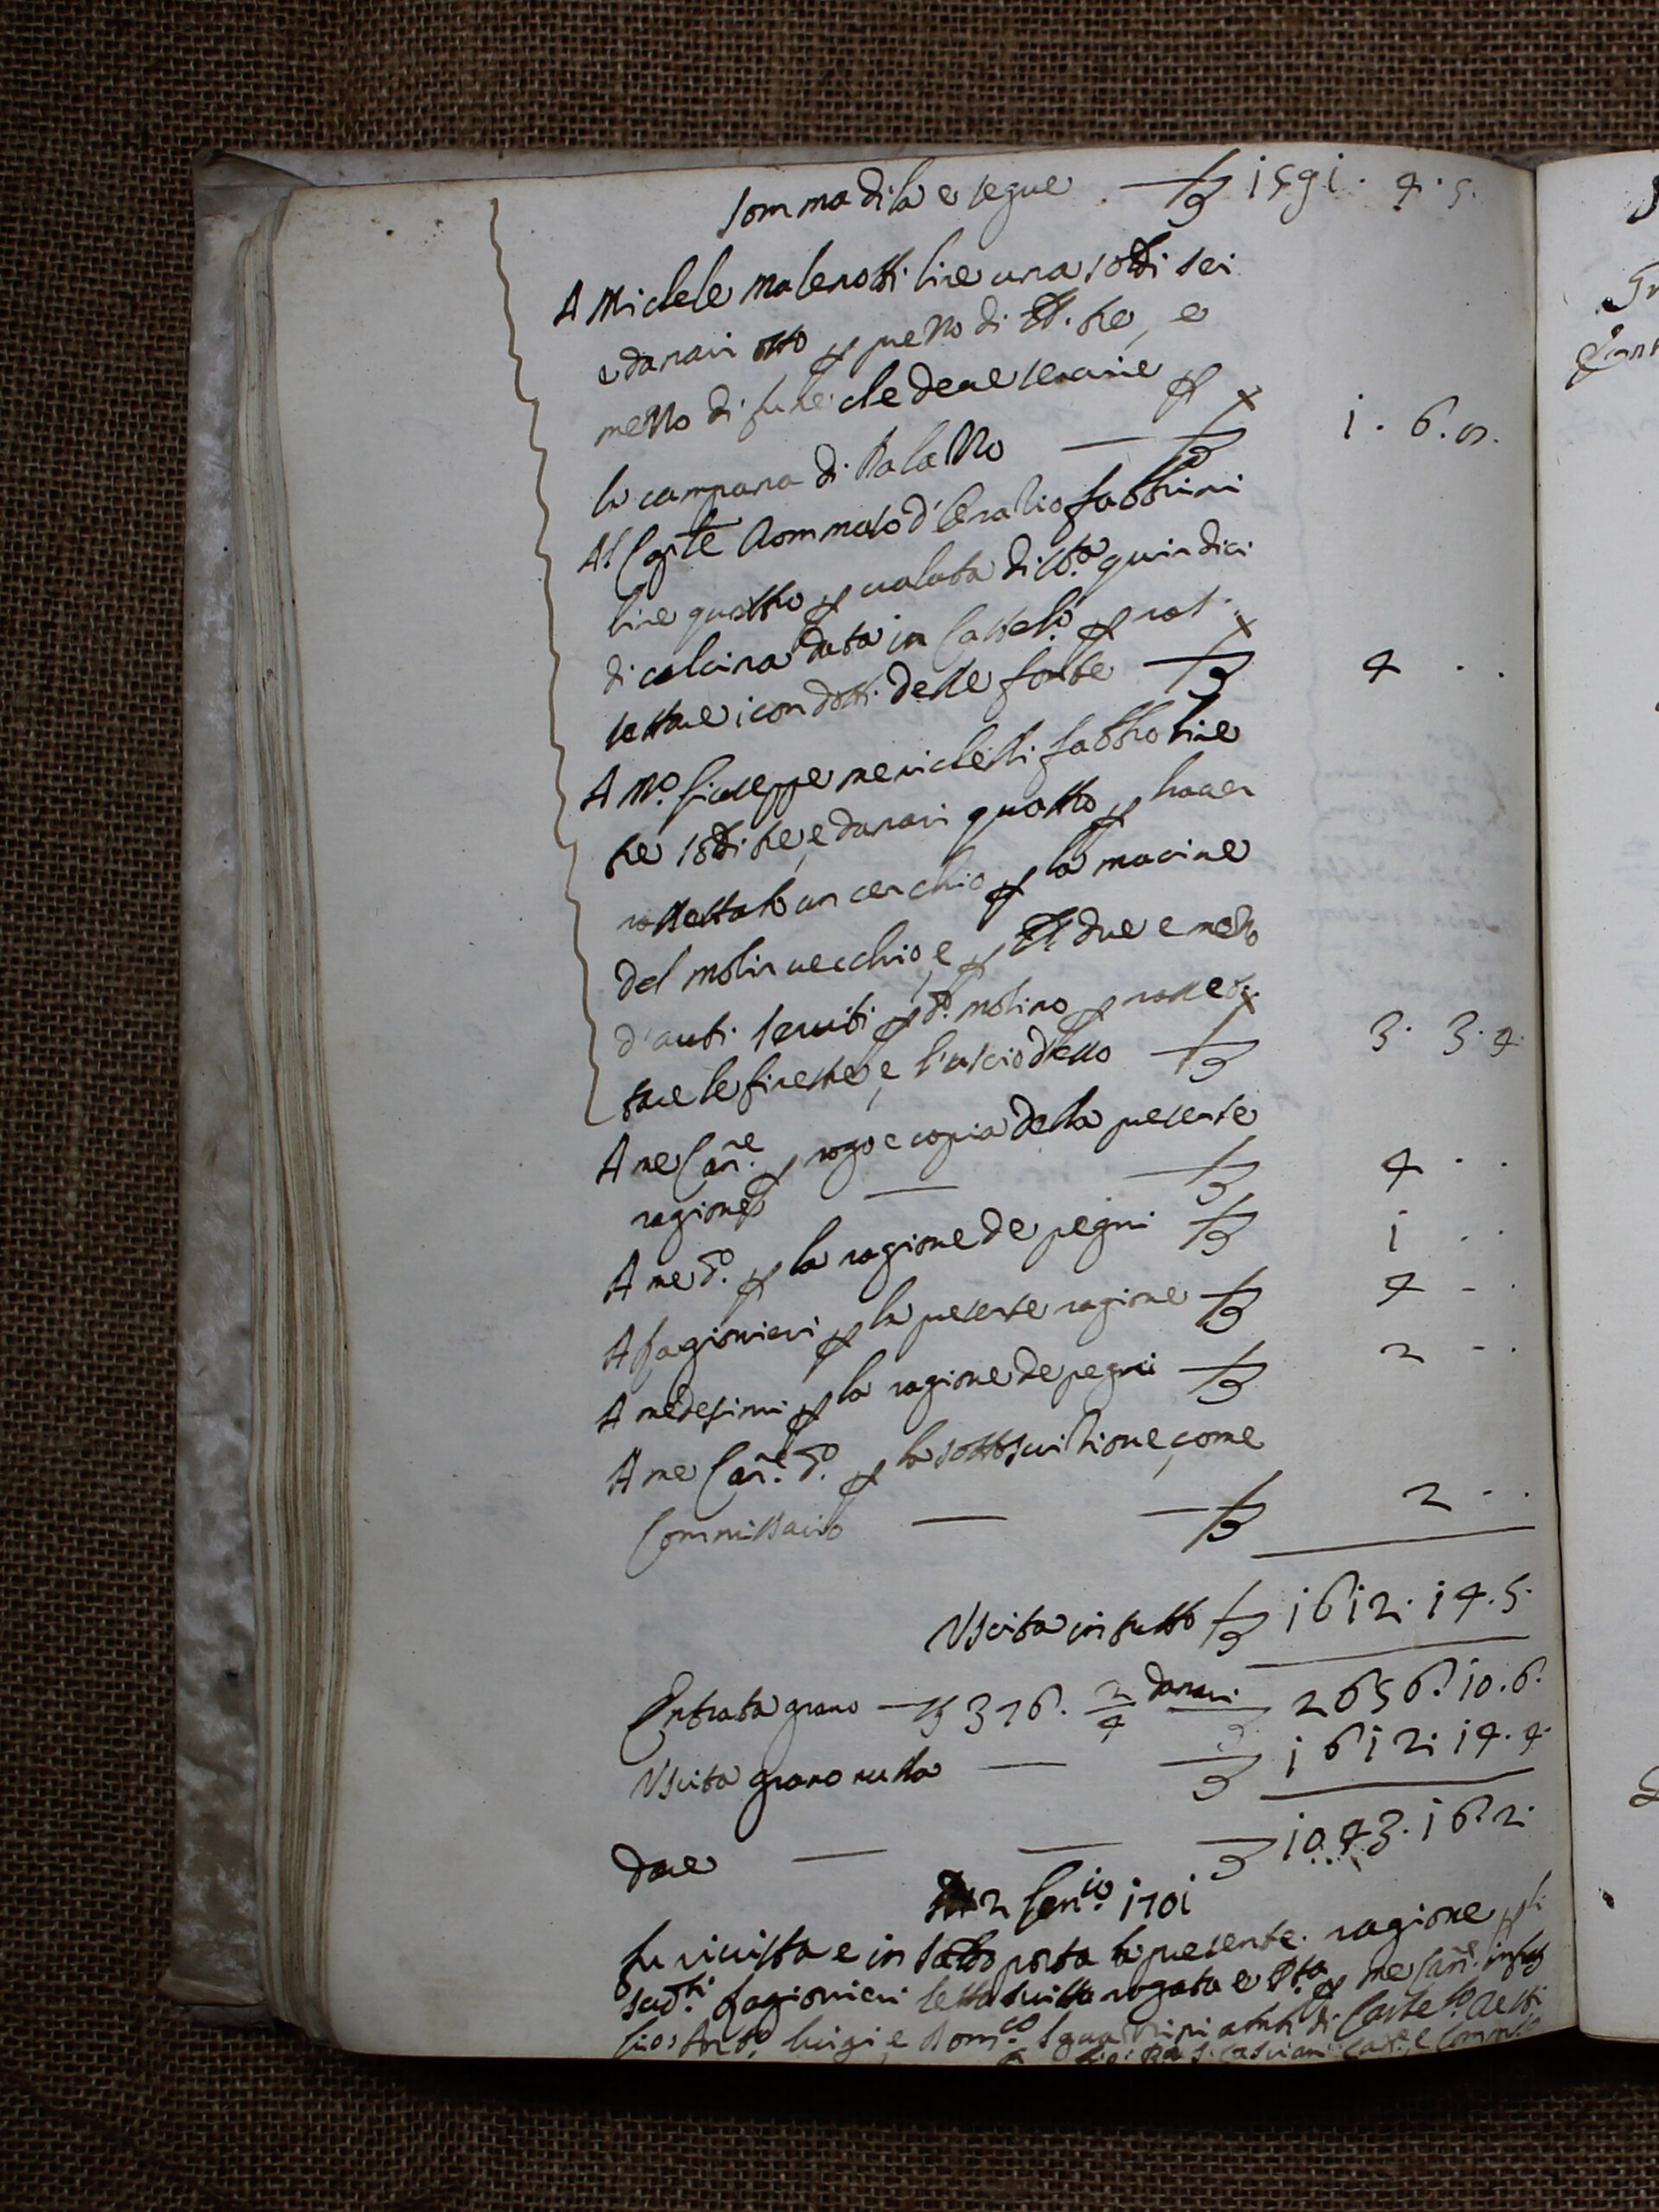 somma di la e segue £ 1591. 4. 5.
A Michele malenotti lire una soldi sei
e danari otto p prezzo di lb. tre, e
mezzo di fune che deve servire p
la campana di Palazzo — £ 1. 6. 8.
Al Capte Tommaso d'Oratio fabbrini
lire quattro p valuta di sta quindici
di calcina data in Castello p ras
settare i condotti delle fonte £ 4 . .
A Mo. Giuseppe menichetti fabbro lire
tre soldi tre, e danari quattro p haver
rassettato un cerchio p la macine
del molin vecchio, e p lb due e mezzo
d'auti serviti p do. molino p rasset
tare le finestre, e l'uscio d'esso £ 3. 3. 4.
A me Canre. p rogo e copia della presente
ragione — £ 4 . .
A me do. p la ragione de pegni £ 1 . .
A Ragionieri p la presente ragione £ 4 - .
A medesimi p la ragione de pegni £ 2 - .
A me Canre. do. p la sottoscritione, come
Commissario — £ 2 - .
Uscita in tutto £ 1612. 14. 5.
Entrata grano — 376. 2/4 danari 2656. 10. 6.
Uscita grano nulla — 1612. 14. 4.
Dare — 1043. 16. 2.
2 Genio. 1701
fu rivista e in saldo posta la presente ragione p li
sudti. Ragionieri letta scritta rogata e p me Canre. infro
Gio: Anto. luigi, e Domco. atnti di Castello testi